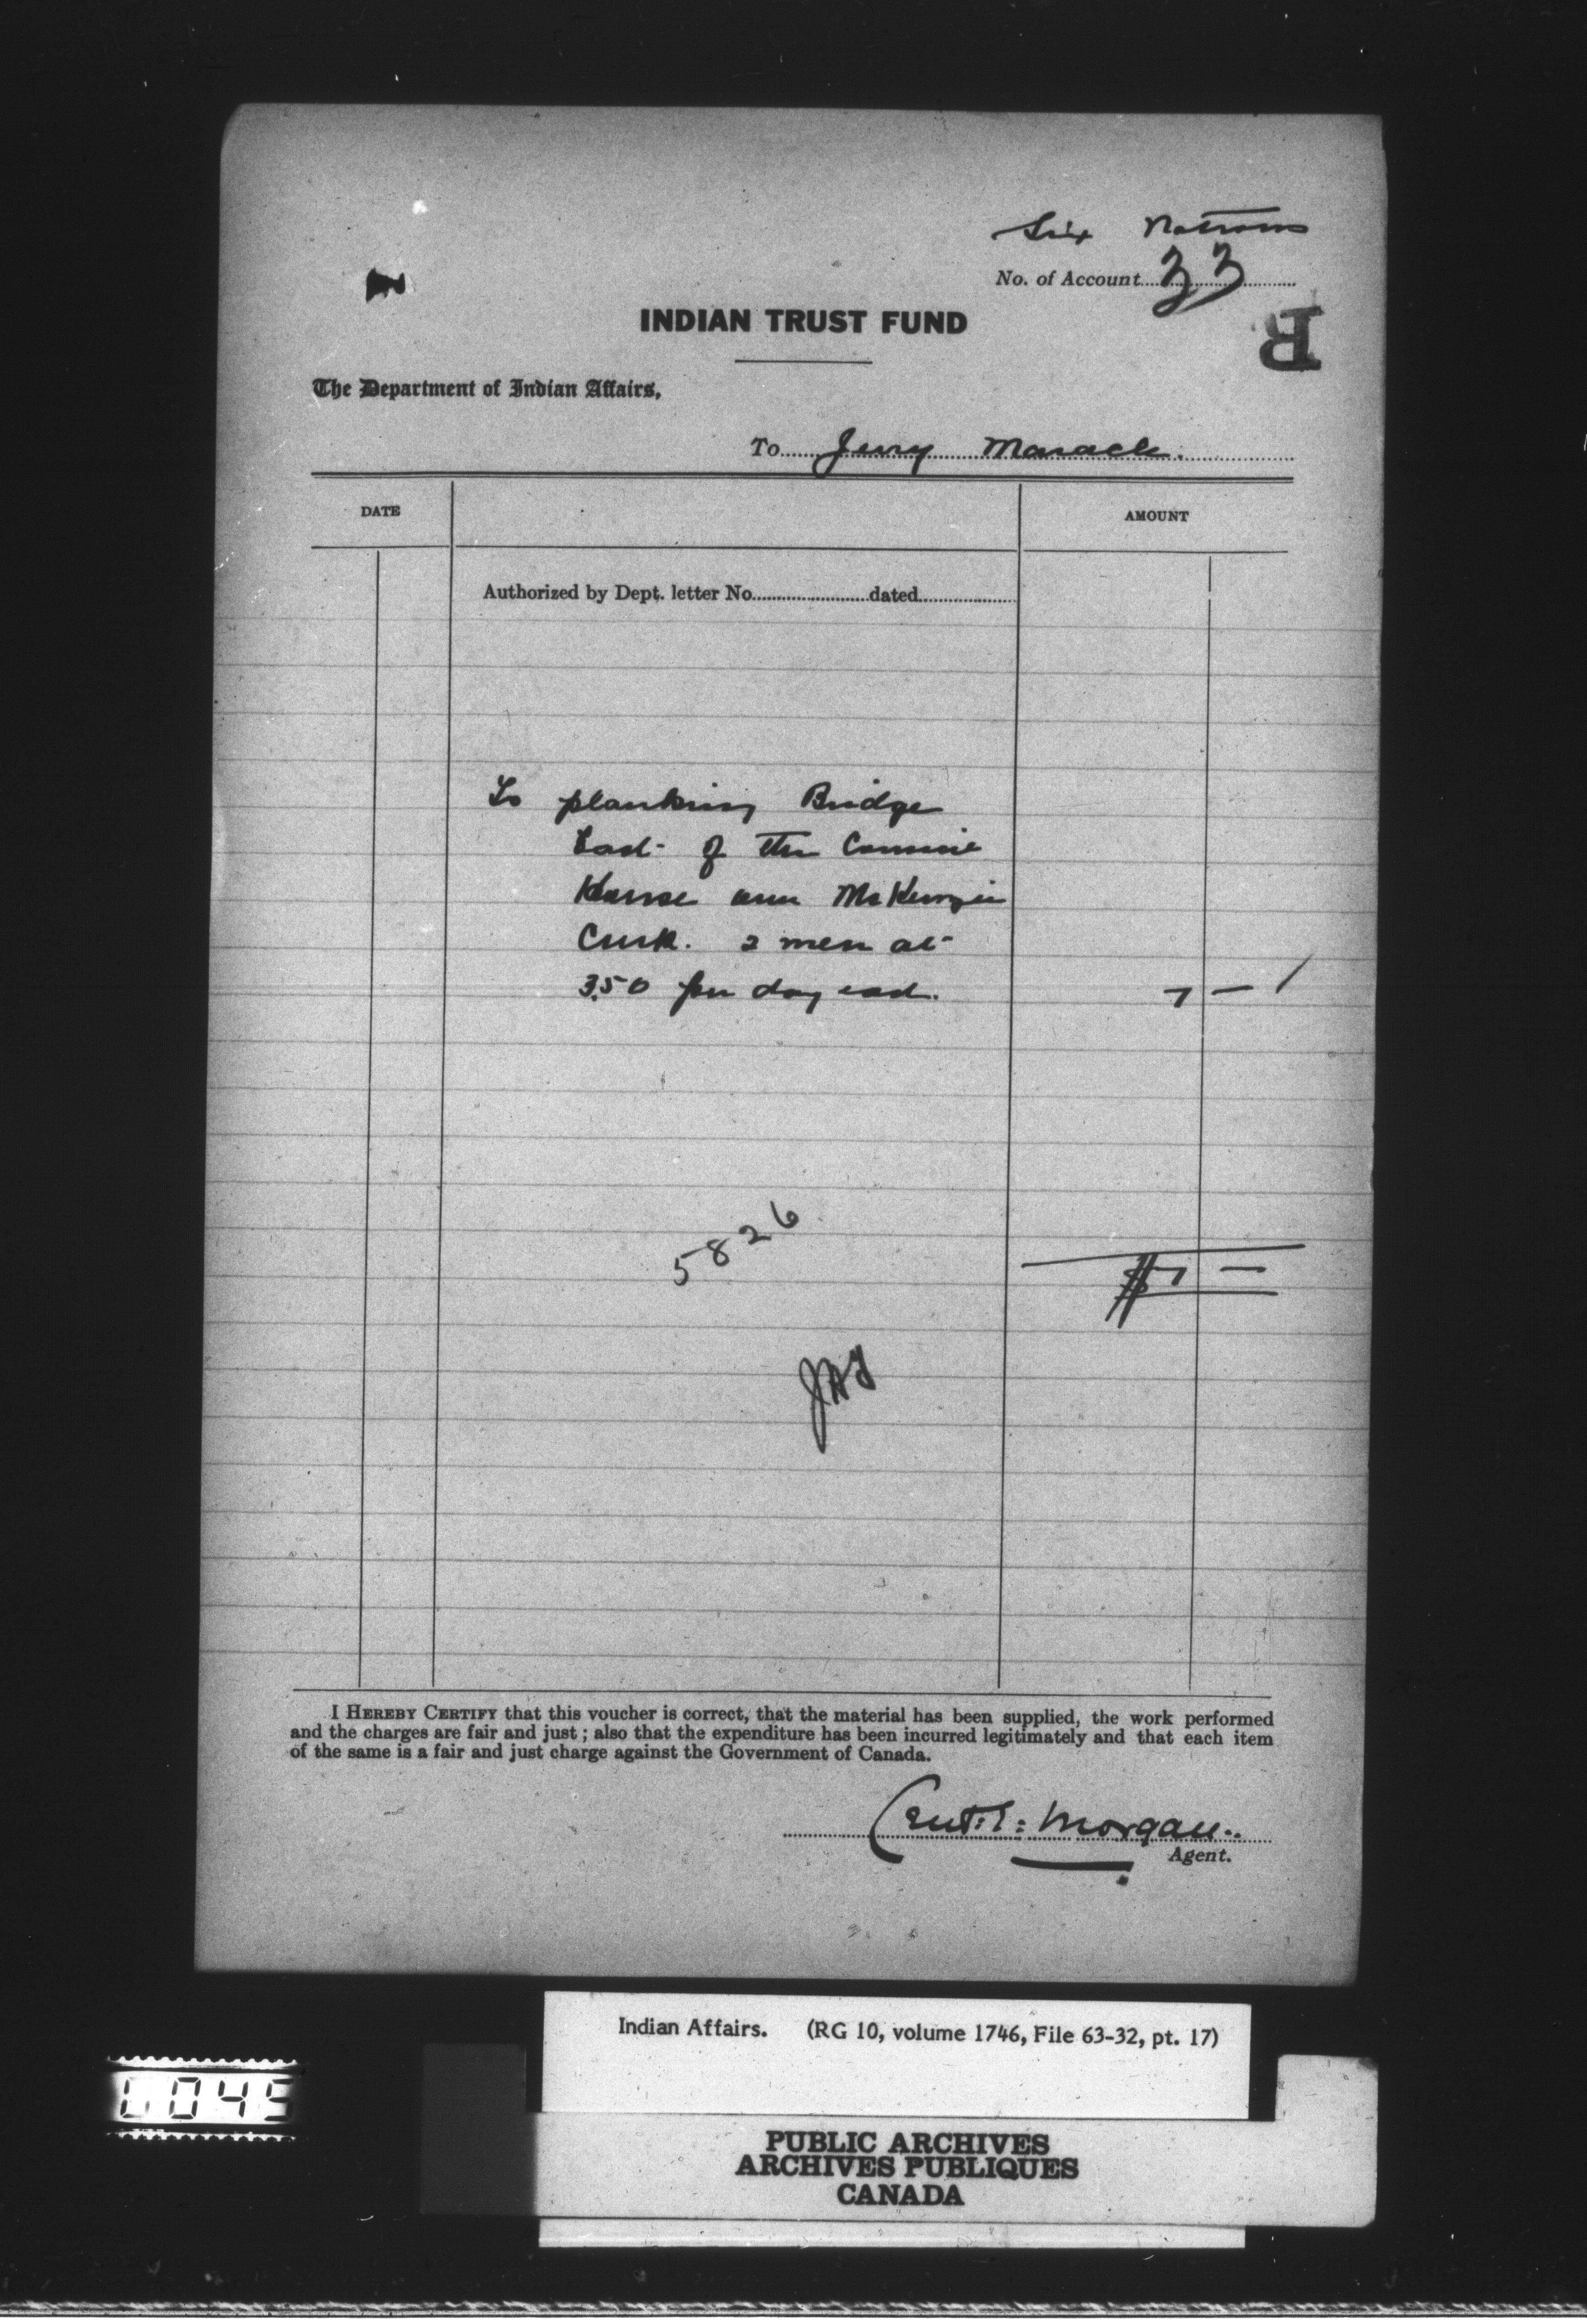 Six Nations
No. of Account 33
R
INDIAN TRUST FUND
The Department of Indian Affairs,
To Jerry Maracle.
DATE
AMOUNT
Authorized by Dept. letter No. dated
To planking Bridge
East of the Council
House over McKenzie
Creek. 2 men at
3.50 per day each. 7 –
5826
$7 –
I HEREBY CERTIFY that this voucher is correct, that the material has been supplied, the work performed
and the charges are fair and just; also that the expenditure has been incurred legitimately and that each item
of the same is a fair and just charge against the Government of Canada.
Morgan
Agent.
Indian Affairs. (RG 10, volume 1746, File 63-32, pt. 17)
0045
PUBLIC ARCHIVES
ARCHIVES PUBLIQUES
CANADA